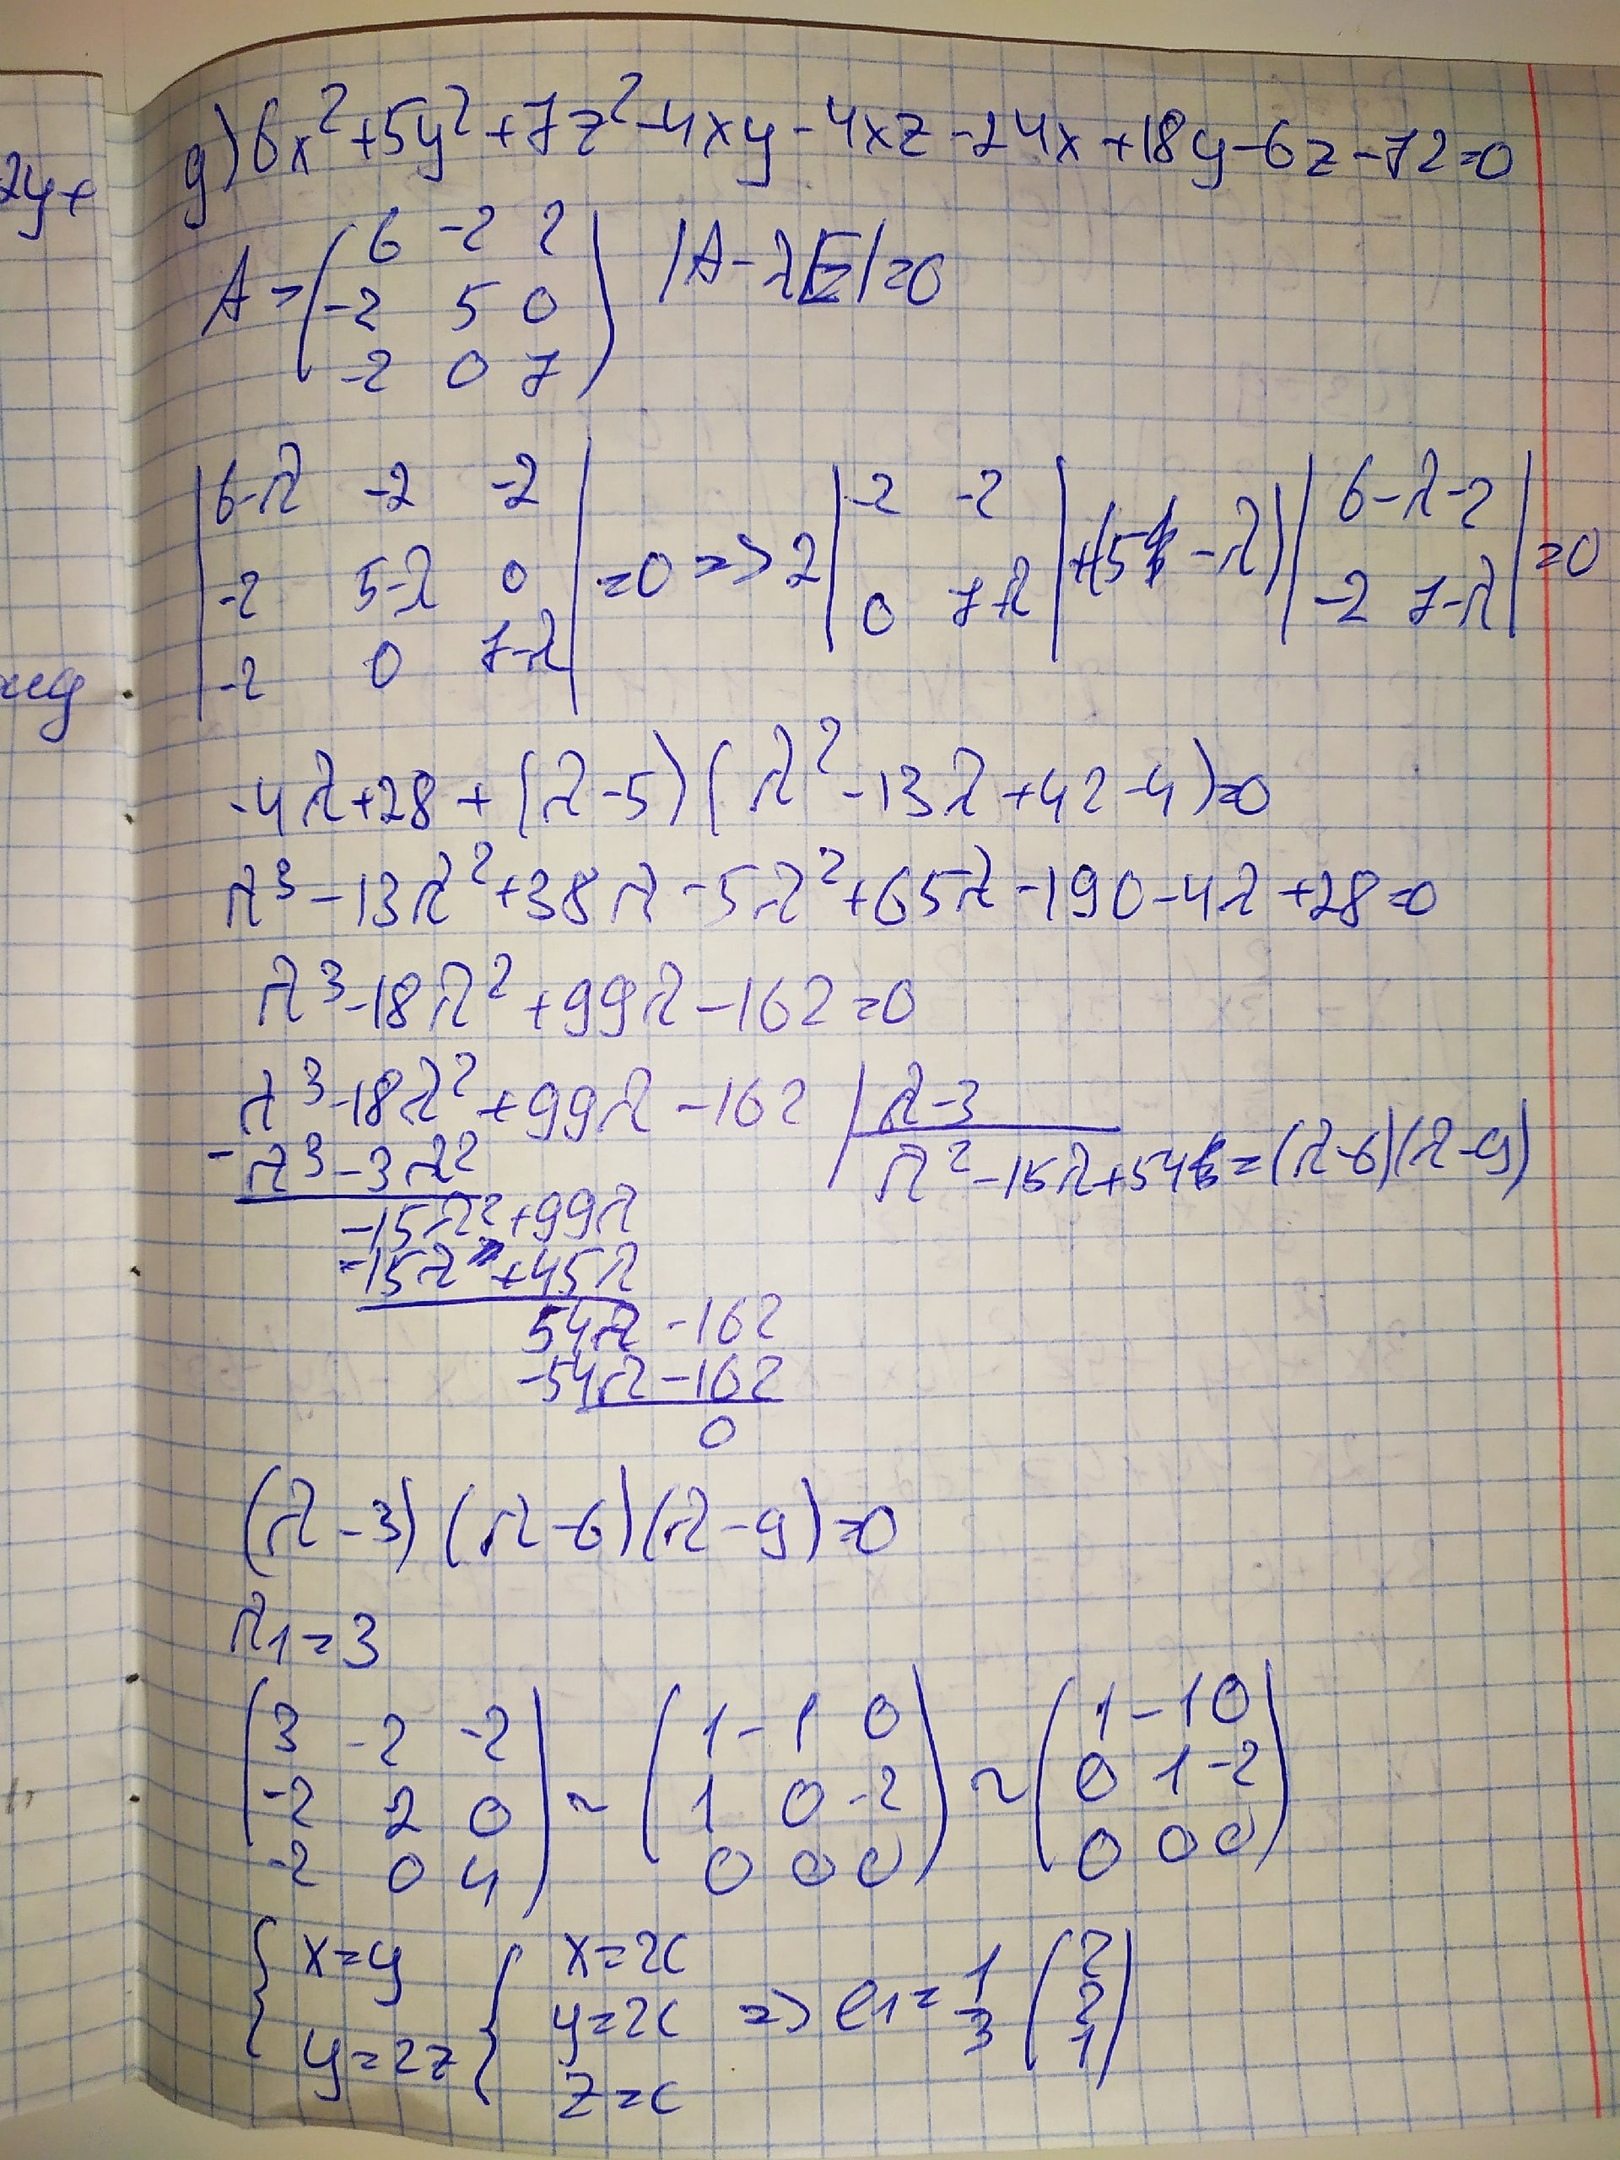 2y+
д) 6x²+5y²+7z²-4xy-4xz-24x+18y-6z-72=0
A = ( 6 -2 2 ) |A-λE|=0
-2 5 0
-2 0 7
|6-λ -2 -2| =0 => 2 |-2 -2| +(5-λ) |6-λ -2| =0
-2 5-λ 0 0 7-λ -2 7-λ
-2 0 7-λ
-4λ+28+(λ-5)(λ²-13λ+42-4)=0
λ³-13λ²+38λ-5λ²+65λ-190-4λ+28=0
λ³-18λ²+99λ-162=0
λ³-18λ²+99λ-162 | λ-3
- λ³-3λ² λ²-15λ+54=(λ-6)(λ-9)
-15λ²+99λ
-15λ²+45λ
54λ-162
-54λ-162
0
(λ-3)(λ-6)(λ-9)=0
λ1=3
( 3 -2 -2 ) ~ ( 1 -1 0 ) ~ ( 1 -1 0 )
-2 2 0 1 0 -2 0 1 -2
-2 0 4 0 0 0 0 0 0
{ x=y { x=2c
y=2z y=2c => e1= 1/3 ( 2 2 1 )
z=c